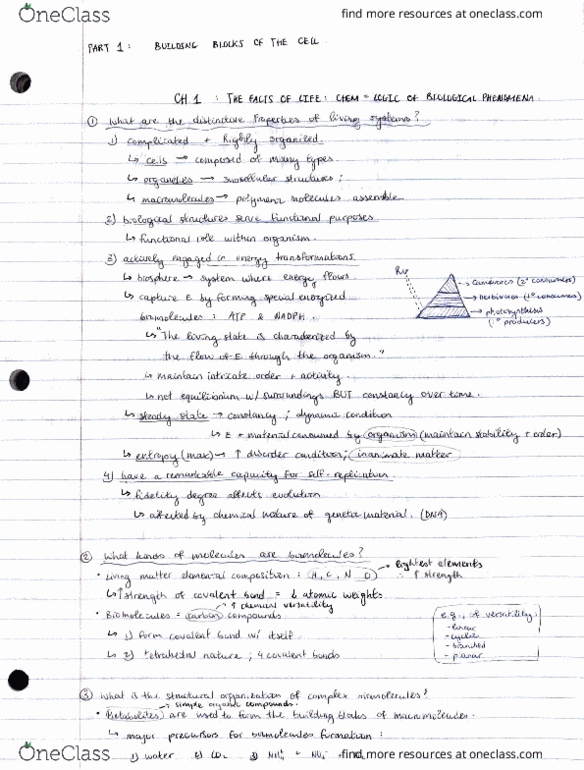 OneClass
find more resources at oneclass.com
PART 1: BUILDING BLOCKS OF THE CELL.
CH 1 : THE FACTS OF LIFE: CHEM = LOGIC OF BIOLOGICAL PHENOMENA.
① What are the distinctive Properties of living systems?
1) complicated + highly organized
↳ cells → composed of many types.
↳ organelles → subcellular structures;
↳ macromolecules → polymeric molecules assemble.
2) biological structures serve functional purposes
↳ functional role within organism.
3) actively engaged in energy transformations.
↳ biosphere → system where energy flows.
↳ capture E by forming special energized
biomolecules: ATP & NADPH.
↳ "The living state is characterized by
the flow of E through the organism."
↳ maintain intricate order + activity.
↳ not equilibrium w/ surroundings BUT constancy over time.
↳ steady state → constancy; dynamic condition
↳ E + material consumed by organism (maintain stability + order)
↳ entropy (max) → ↑ disorder condition; inanimate matter
4) have a remarkable capacity for self-replication
↳ fidelity degree affects evolution
↳ affected by chemical nature of genetic material. (DNA)
carnivores (2° consumers)
herbivores (1° consumers)
photosynthesis
(1° producers)
② What kinds of molecules are biomolecules?
• Living matter elemental composition: (H, C, N O) → lightest elements
∴ ↑ strength
↳ ↑ strength of covalent bond = ↓ atomic weights
↑ chemical versatility
• Biomolecules = carbon compounds
↳ 1) form covalent bond w/ itself
↳ 2) tetrahedral nature; 4 covalent bonds
e.g., of versatility:
- linear
- cyclic
- branched
- planar
③ What is the structural organization of complex biomolecules?
→ simple organic compounds.
• Metabolites are used to form the building blocks of macromolecules.
↳ major precursors for biomolecules formation:
1) water 2) CO₂ 3)
OneClass
find more resources at oneclass.com